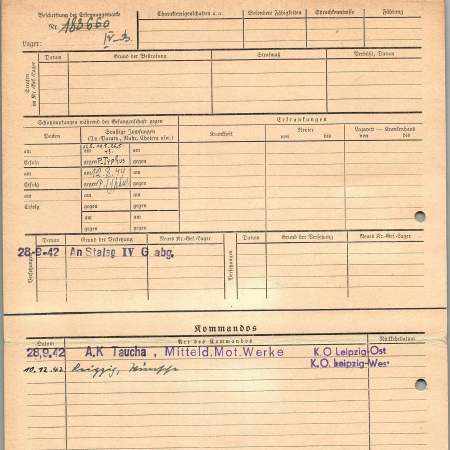 Beschriftung der Erkennungsmarke
Nr. 183660
IV B.
Lager:
Charaktereigenschaften u. a.
Besondere Fähigkeiten
Sprachkenntnisse
Führung
Strafen in Kr.-Gef.-Lager
Datum
Grund der Bestrafung
Strafmaß
Verbüßt, Datum
Schutzimpfungen während der Gefangenschaft gegen
Erkrankungen
Pocken
Sonstige Impfungen
(Ty.-Paratyp., Ruhr, Cholera usw.)
Krankheit
Revier
von bis
Lazarett — Krankenhaus
von bis
am am am
Erfolg gegen P. Typhus gegen
am am 12.8.44 am
Erfolg gegen P. Typhus gegen
am am am
Erfolg gegen gegen
am am
gegen gegen
Versetzungen
Datum
Grund der Versetzung
Neues Kr.-Gef.-Lager
Versetzungen
Datum
Grund der Versetzung
Neues Kr.-Gef.-Lager
28-9-42 An Stalag IV G abg.
Kommandos
Datum
Art des Kommandos
Rückkehrdatum
28.9.42 A.K Taucha, Mitteld. Mot. Werke K.O Leipzig-Ost
10.12.42 Leipzig, K.O. Leipzig-Wes